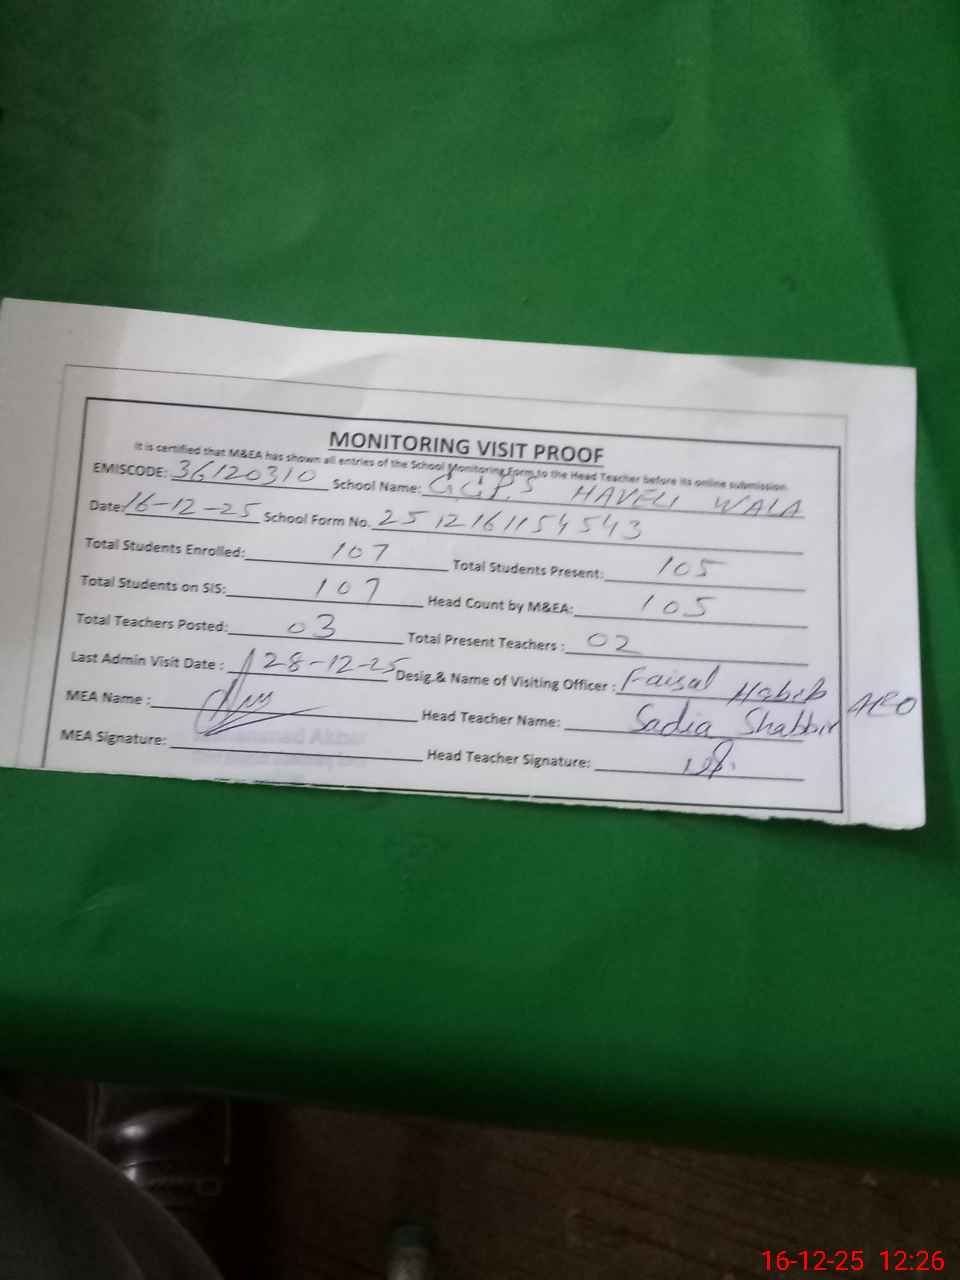 MONITORING VISIT PROOF
It is certified that M&EA has shown all entries of the School Monitoring Form to the Head Teacher before its online submission.
EMISCODE: 36120310 School Name: GGPS HAVELI WALA
Date: 16-12-25 School Form No. 2512161154543
Total Students Enrolled: 107 Total Students Present: 105
Total Students on SIS: 107 Head Count by M&EA: 105
Total Teachers Posted: 03 Total Present Teachers : 02
Last Admin Visit Date : 28-12-25 Desig.& Name of Visiting Officer : Faisal Habib AEO
MEA Name : Head Teacher Name: Sadia Shabbir
MEA Signature: Head Teacher Signature:
16-12-25 12:26